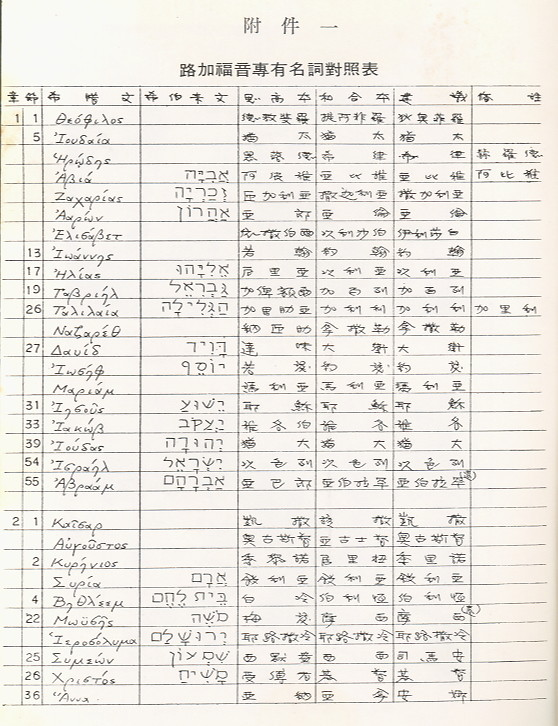 附件一
路加福音專有名詞對照表
章 節 希臘文 希伯來文 思高本 和合本 建議 備註
1 1 Θεόφιλος 德敖斐羅 提阿非羅 狄奧菲羅
5 Ἰουδαία 猶太 猶太 猶太
Ἡρῴδης 黑落德 希律 希律 赫羅德
Ἀβιά אֲבִיָּה 阿彼雅 亞比雅 亞比雅 阿比雅
Ζαχαρίας זְכַרְיָה 匝加利亞 撒迦利亞 撒加利亞
Ἀαρών אַהֲרוֹן 亞郎 亞倫 亞倫
Ἐλισάβετ 依撒伯爾 以利沙伯 伊利莎白
13 Ἰωάννης 若翰 約翰 約翰
17 Ἠλίας אֵלִיָּהוּ 厄里亞 以利亞 以利亞
19 Γαβριήλ גַּבְרִאֵל 加俾額爾 加百列 加百列
26 Γαλιλαία הַגְּלִילָה 加里肋亞 加利利 加利利 加里利
Ναζαρέθ 納匝肋 拿撒勒 拿撒勒
27 Δαυίδ דָּוִיד 達味 大衛 大衛
Ἰωσήφ יוֹסֵף 若瑟 約瑟 約瑟
Μαριάμ 瑪利亞 馬利亞 瑪利亞
31 Ἰησοῦς יֵשׁוּעַ 耶穌 耶穌 耶穌
33 Ἰακώβ יַעֲקֹב 雅各伯 雅各 雅各
39 Ἰούδας יְהוּדָה 猶大 猶大 猶大
54 Ἰσραήλ יִשְׂרָאֵל 以色列 以色列 以色列
55 Ἀβραάμ אַבְרָהָם 亞巴郎 亞伯拉罕 亞伯拉罕
2 1 Καῖσαρ 凱撒 該撒 凱撒
Αὐγοῦστος 奧古斯都 亞古士督 奧古斯督
2 Κυρήνιος 季黎諾 居里扭 季里諾
Συρία אֲרָם 敘利亞 敘利亞 敘利亞
4 Βηθλέεμ בֵּית לֶחֶם 白冷 伯利恆 伯利恆
22 Μωϋσῆς מֹשֶׁה 梅瑟 摩西 摩西
Ἱεροσόλυμα יְרוּשָׁלַם 耶路撒冷 耶路撒冷 耶路撒冷
25 Συμεών שִׁמְעוֹן 西默盎 西面 司馬安
26 Χριστός מָשִׁיחַ 受傅者 基督 基督
36 Ἅννα 亞納 亞拿 安娜